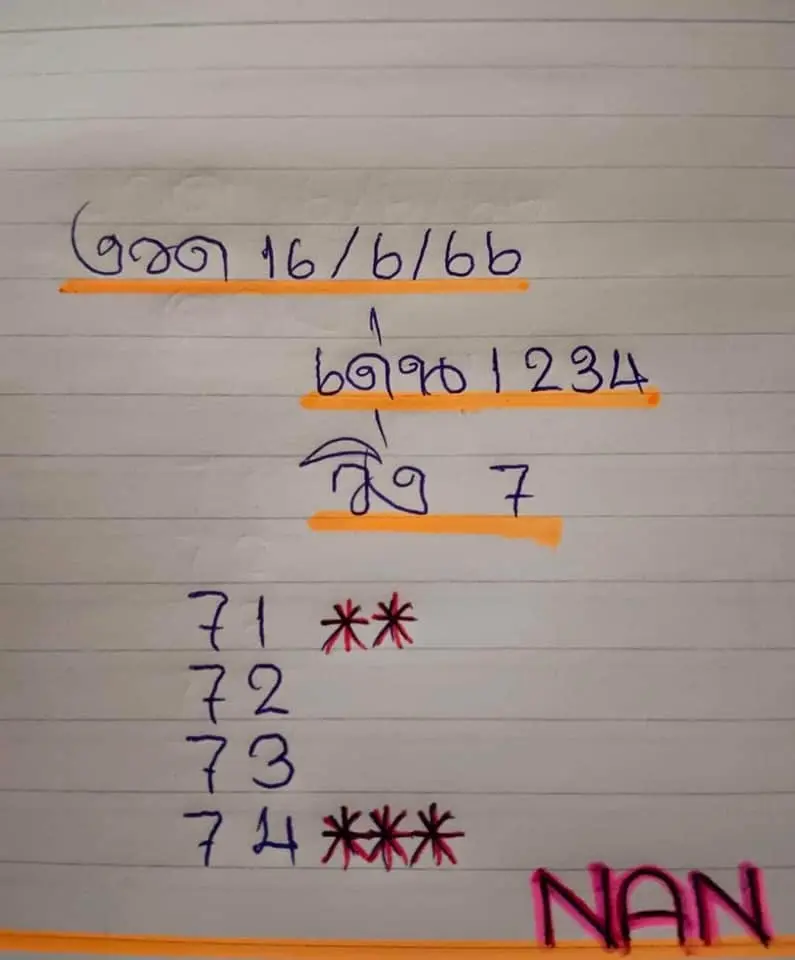 งวด 16/6/66
เด่น 1234
วิ่ง 7
71 **
72
73
74 ***
NAN